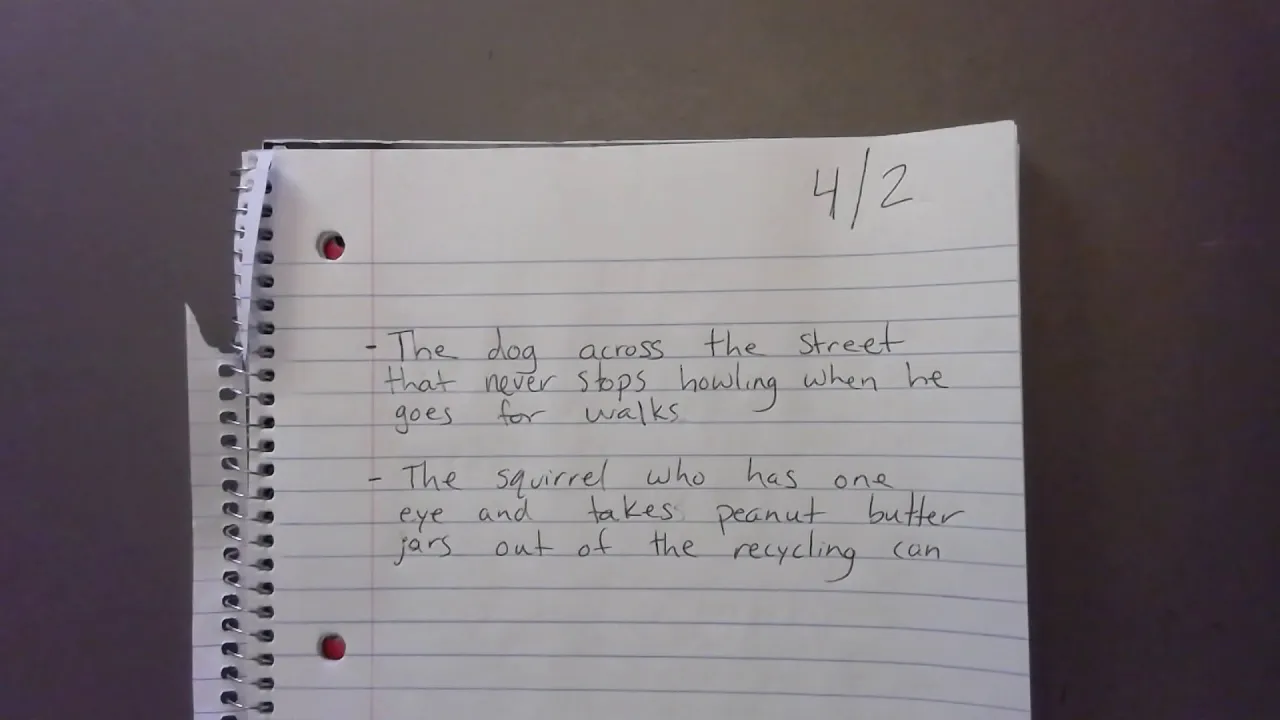 4/2
- The dog across the street
that never stops howling when he
goes for walks
- The squirrel who has one
eye and takes peanut butter
jars out of the recycling can